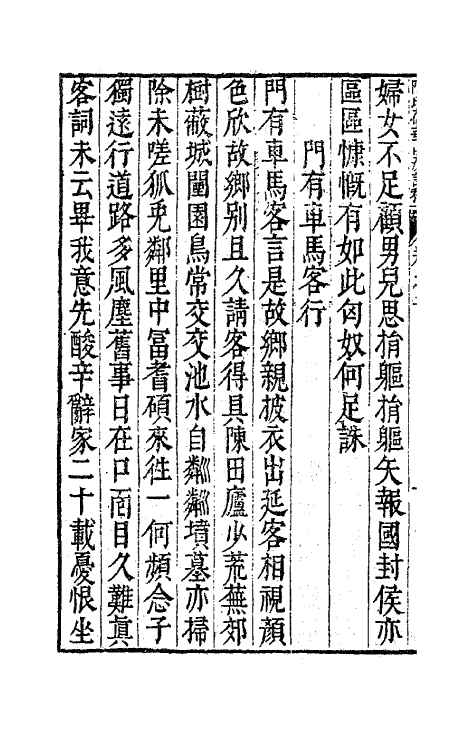 婦女不足顧男兒思捐軀捐軀矢報國封侯亦
區區慷慨有如此匈奴何足誅
門有車馬客行
門有車馬客言是故鄉親披衣出延客相視顏
色欣故鄉别且久請客得具陳田廬少荒蕪郊
樹蔽城闉園鳥常交交池水自粼粼墳墓亦掃
除未嗟狐兎鄰里中冨耆碩來徃一何頻念子
獨遠行道路多風塵舊事日在口面目久難真
客詞未云畢我意先酸辛辭家二十載憂恨坐